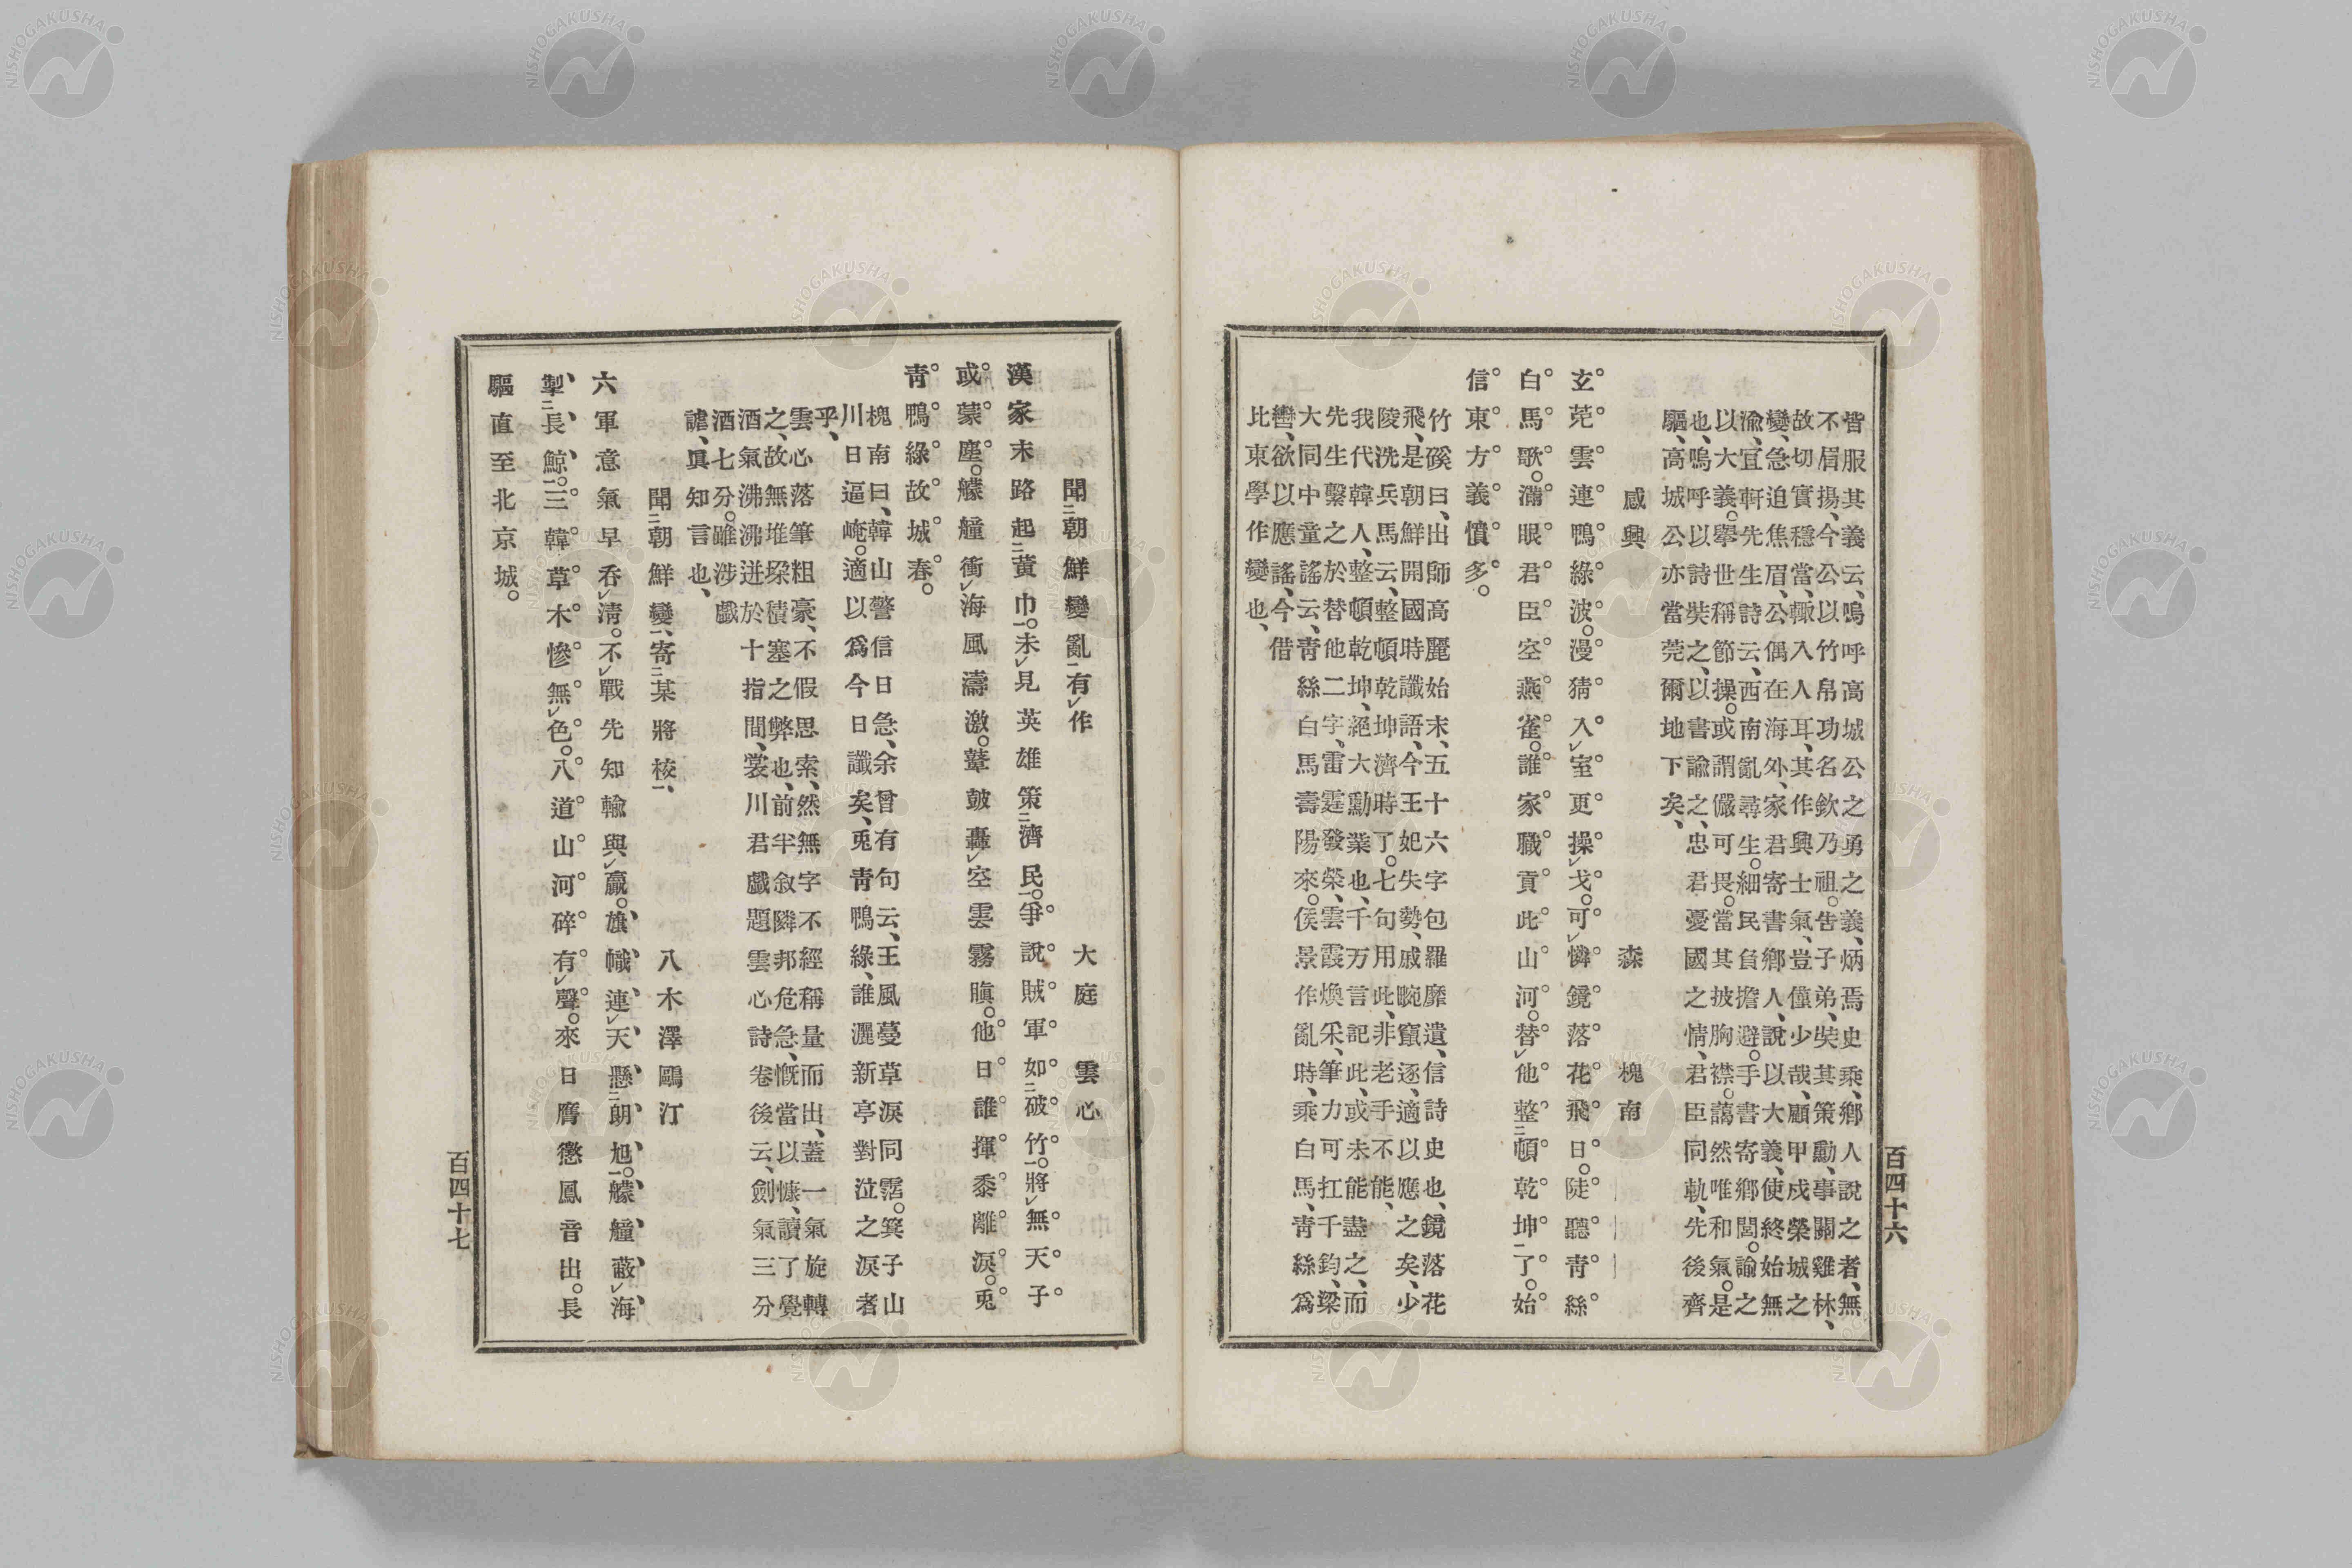 皆服其義云、嗚呼高城公之勇之義、炳焉史乘、鄕人說之者、無
不眉揚、今公以竹帛功名欽乃祖。告子弟、奘其策勳、事關雞林、
故切實穩當、輙入人耳、其作興士氣、豈僅少哉、顧甲戍榮城之
變、急迫焦眉、公偶在海外、家君寄書鄕人、說以大義、使終始無
渝、宜軒先生詩云、西南亂尋生。細民負擔避。手書寄鄕閭。諭之
以大義。擧世稱節操。或謂儼可畏。當其披胸襟。藹然唯和氣。是
也、嗚呼以詩奘之、以書諭之、忠君憂國之情、君臣同軌、先後齊
驅、高城公亦當莞爾地下矣、
感興　森槐南
玄莬雲連鴨綠波。漫猜入室更操戈。可憐鏡落花飛日。陡聽靑絲
白馬歌。滿眼君臣空燕雀。誰家職貢此山河。替他整頓乾坤了。始
信東方義憤多。
竹磎曰、出師高麗始末、五十六字包羅靡遺、信詩史也、鏡落花
飛、是朝鮮開國時讖語、今王妃失勢、戚畹竄逐、適以應之矣、少
陵洗兵馬云、整頓乾坤濟時了。七句用此、非老手不能、
我代韓人、整頓乾坤、絕大勳業也、千万言記此、或未能盡之、而
先生繫之於替他二字、雷霆發榮、雲霞煥釆、筆力可扛千鈞、梁
大同中童謠云、靑絲白馬壽陽來。侯景作亂時、乘白馬靑絲爲
轡、欲以應謠、今借
比東學作變也、
百四十六
聞朝鮮變亂有作　大庭雲心
漢家末路起黃巾。未見英雄策濟民。爭說賊軍如破竹。將無天子
或蒙塵。艨艟衝海風濤激。鼙皷轟空雲霧瞋。他日誰揮黍離淚。兎
靑鴨綠故城春。
槐南曰、韓山警信日急、余曾有句云、王風蔓草淚同霑。箕子山
川日逼崦。適以爲今日讖矣、兎靑鴨綠、誰灑新亭對泣之淚者
乎、
雲心落筆粗豪、不假思索、然無字不經稱量而出、蓋一氣旋轉
之、故無堆垜積塞之弊也、前半敘隣邦危急、慨當以慷、讀了覺
酒氣沸沸迸於十指間、裳川君戲題雲心詩卷後云、劍氣三分
酒七分。雖涉戲
謔、眞知言也、
聞朝鮮變、寄某將校、　八木澤鷗汀
六軍意氣早呑淸。不戰先知輸與贏。旗幟連天懸朗旭。艨艟蔽海
掣長鯨。三韓草木慘無色。八道山河碎有聲。來日膺懲鳳音出。長
驅直至北京城。
百四十七